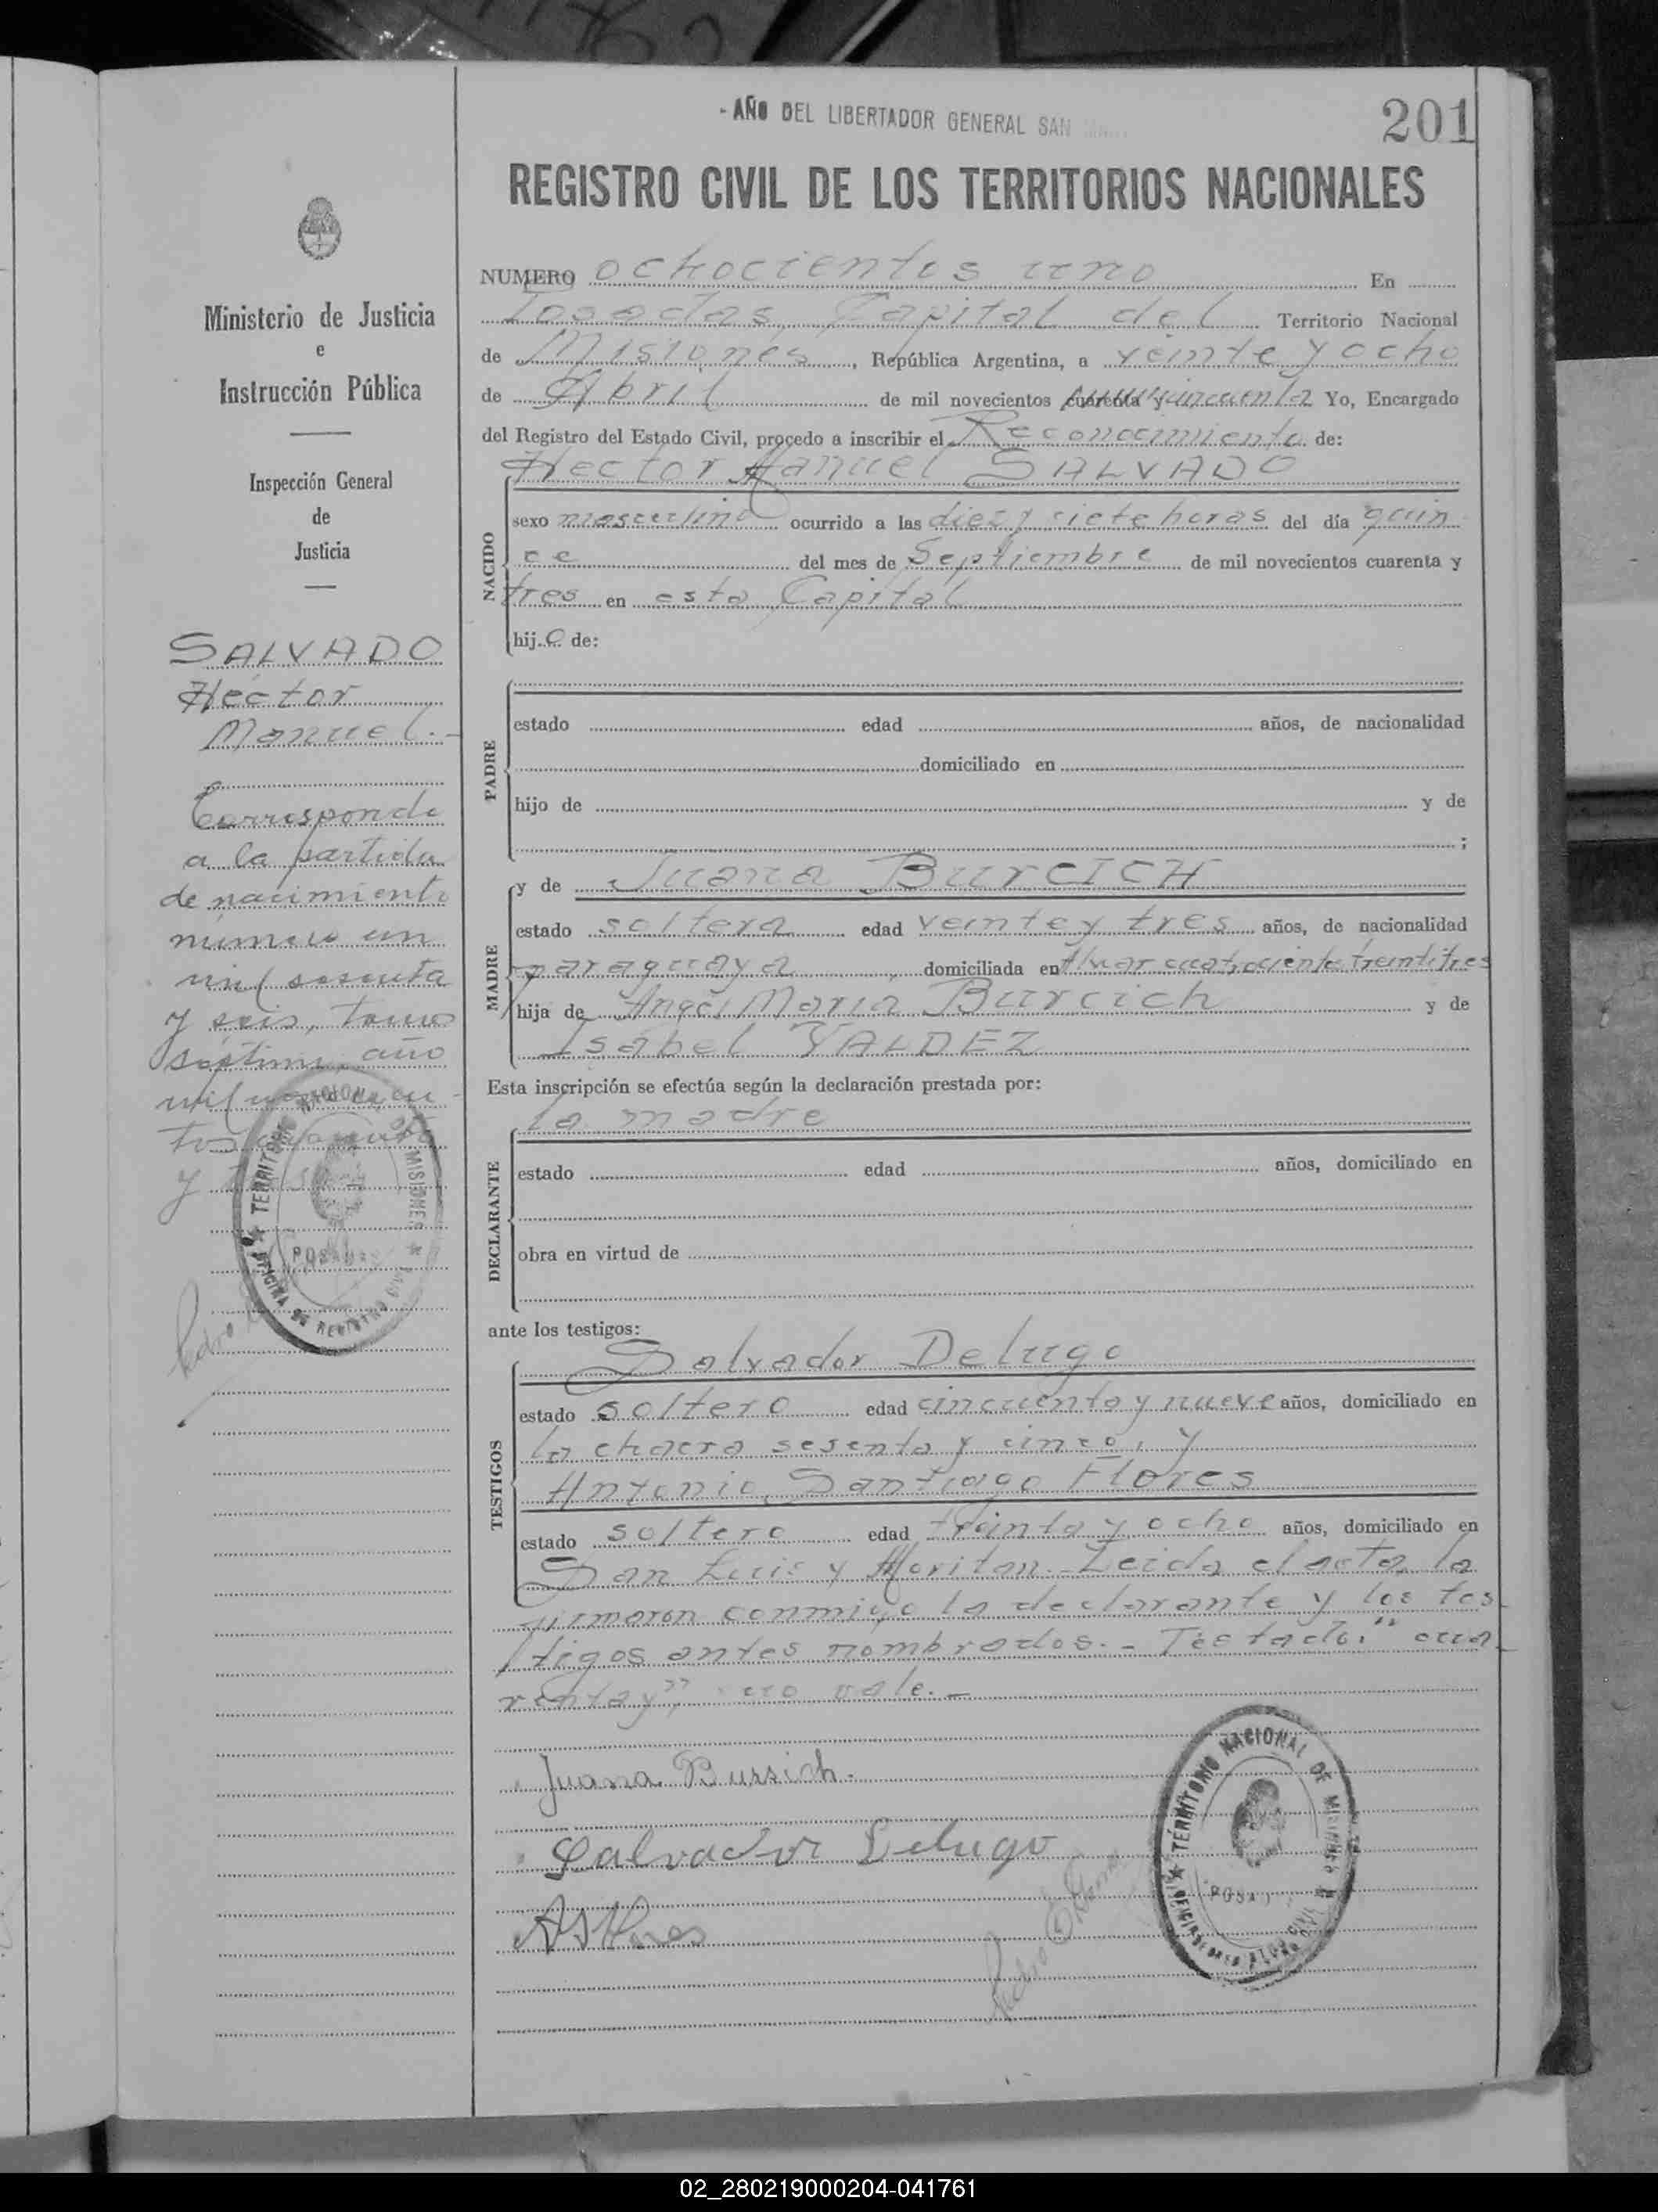 - AÑO DEL LIBERTADOR GENERAL SAN
201
REGISTRO CIVIL DE LOS TERRITORIOS NACIONALES
Ministerio de Justicia
e
Instrucción Pública
Inspección General
de
Justicia
SALVADO
Héctor
Manuel.-
Corresponde
a la partida
de nacimiento
número un
mil sesenta
y seis, tomo
séptimo, año
mil novecien-
tos cuarenta
y
TERRITORIO NACIONAL MISIONES
POSADAS
OFICINA DE REGISTRO CIVIL
Pedro
NUMERO ochocientos uno En
Posadas, Capital del Territorio Nacional
de Misiones, República Argentina, a veinte y ocho
de Abril de mil novecientos cuarenta y cincuenta Yo, Encargado
del Registro del Estado Civil, procedo a inscribir el Reconocimiento de:
Hector Manuel SALVADO
NACIDO
sexo masculino ocurrido a las diez y siete horas del día quin
ce del mes de Septiembre de mil novecientos cuarenta y
tres en esta Capital
hijo de:
PADRE
estado edad años, de nacionalidad
domiciliado en
hijo de y de
;
MADRE
y de Juana BurcICH
estado soltera edad veinte y tres años, de nacionalidad
paraguaya, domiciliada en cuatrociento treintitres
hija de Angel María Burcich y de
Isabel VALDEZ
Esta inscripción se efectúa según la declaración prestada por:
la madre
DECLARANTE
estado edad años, domiciliado en
obra en virtud de
ante los testigos:
TESTIGOS
Salvador Delugo
estado soltero edad cincuenta y nueve años, domiciliado en
la chacra sesenta y cinco, y
Antonio Santiago Flores
estado soltero edad treinta y ocho años, domiciliado en
San Luis y Moritan.- Leida el acta, la
firmaron conmigo la declarante y los tes
tigos antes nombrados.- Testado: "cua-
renta y", no vale.-
Juana Bursich.
Salvador Delugo
ASFlores
Pedro
TERRITORIO NACIONAL DE MISIONES
POSADAS
02_280219000204-041761